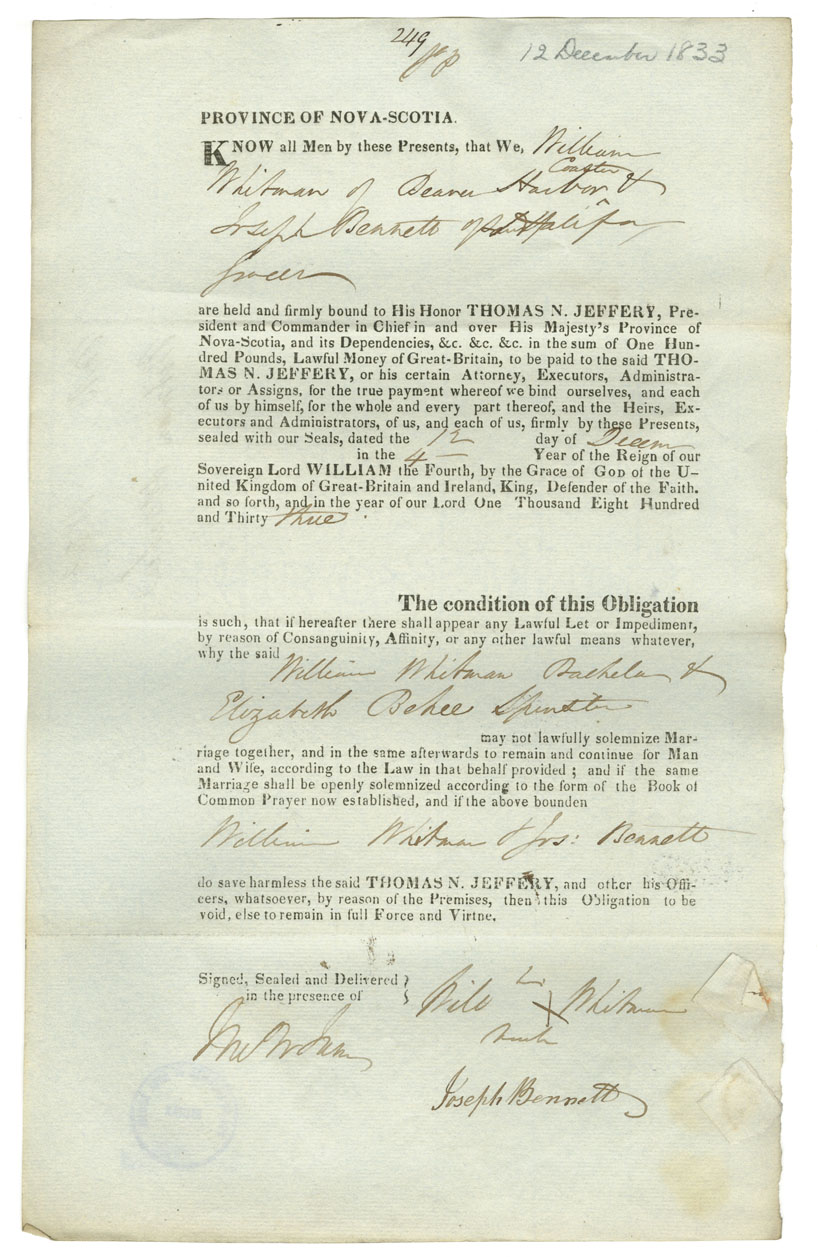 249
12 December 1833
PROVINCE OF NOVA-SCOTIA.
KNOW all Men by these Presents, that We, William
Coaster
Whitman of Beaver Harbor &
Joseph Bennett of Halifax
Grocer
are held and firmly bound to His Honor THOMAS N. JEFFERY, Pre-
sident and Commander in Chief in and over His Majesty's Province of
Nova-Scotia, and its Dependencies, &c. &c. &c. in the sum of One Hun-
dred Pounds, Lawful Money of Great-Britain, to be paid to the said THO-
MAS N. JEFFERY, or his certain Attorney, Executors, Administra-
tors or Assigns, for the true payment whereof we bind ourselves, and each
of us by himself, for the whole and every part thereof, and the Heirs, Ex-
ecutors and Administrators, of us, and each of us, firmly by these Presents,
sealed with our Seals, dated the 12 day of Decem
in the 4 Year of the Reign of our
Sovereign Lord WILLIAM the Fourth, by the Grace of GOD of the U-
nited Kingdom of Great-Britain and Ireland, King, Defender of the Faith.
and so forth, and in the year of our Lord One Thousand Eight Hundred
and Thirty three
The condition of this Obligation
is such, that if hereafter there shall appear any Lawful Let or Impediment,
by reason of Consanguinity, Affinity, or any other lawful means whatever,
why the said William Whitman Bachelor &
Elizabeth Spinster
may not lawfully solemnize Mar-
riage together, and in the same afterwards to remain and continue for Man
and Wife, according to the Law in that behalf provided ; and if the same
Marriage shall be openly solemnized according to the form of the Book of
Common Prayer now established, and if the above bounden
William Whitman & Jos: Bennett
do save harmless the said THOMAS N. JEFFERY, and other his Offi-
cers, whatsoever, by reason of the Premises, then this Obligation to be
void, else to remain in full Force and Virtne.
Signed, Sealed and Delivered }
in the presence of }
Will X Whitman
Joseph Bennett